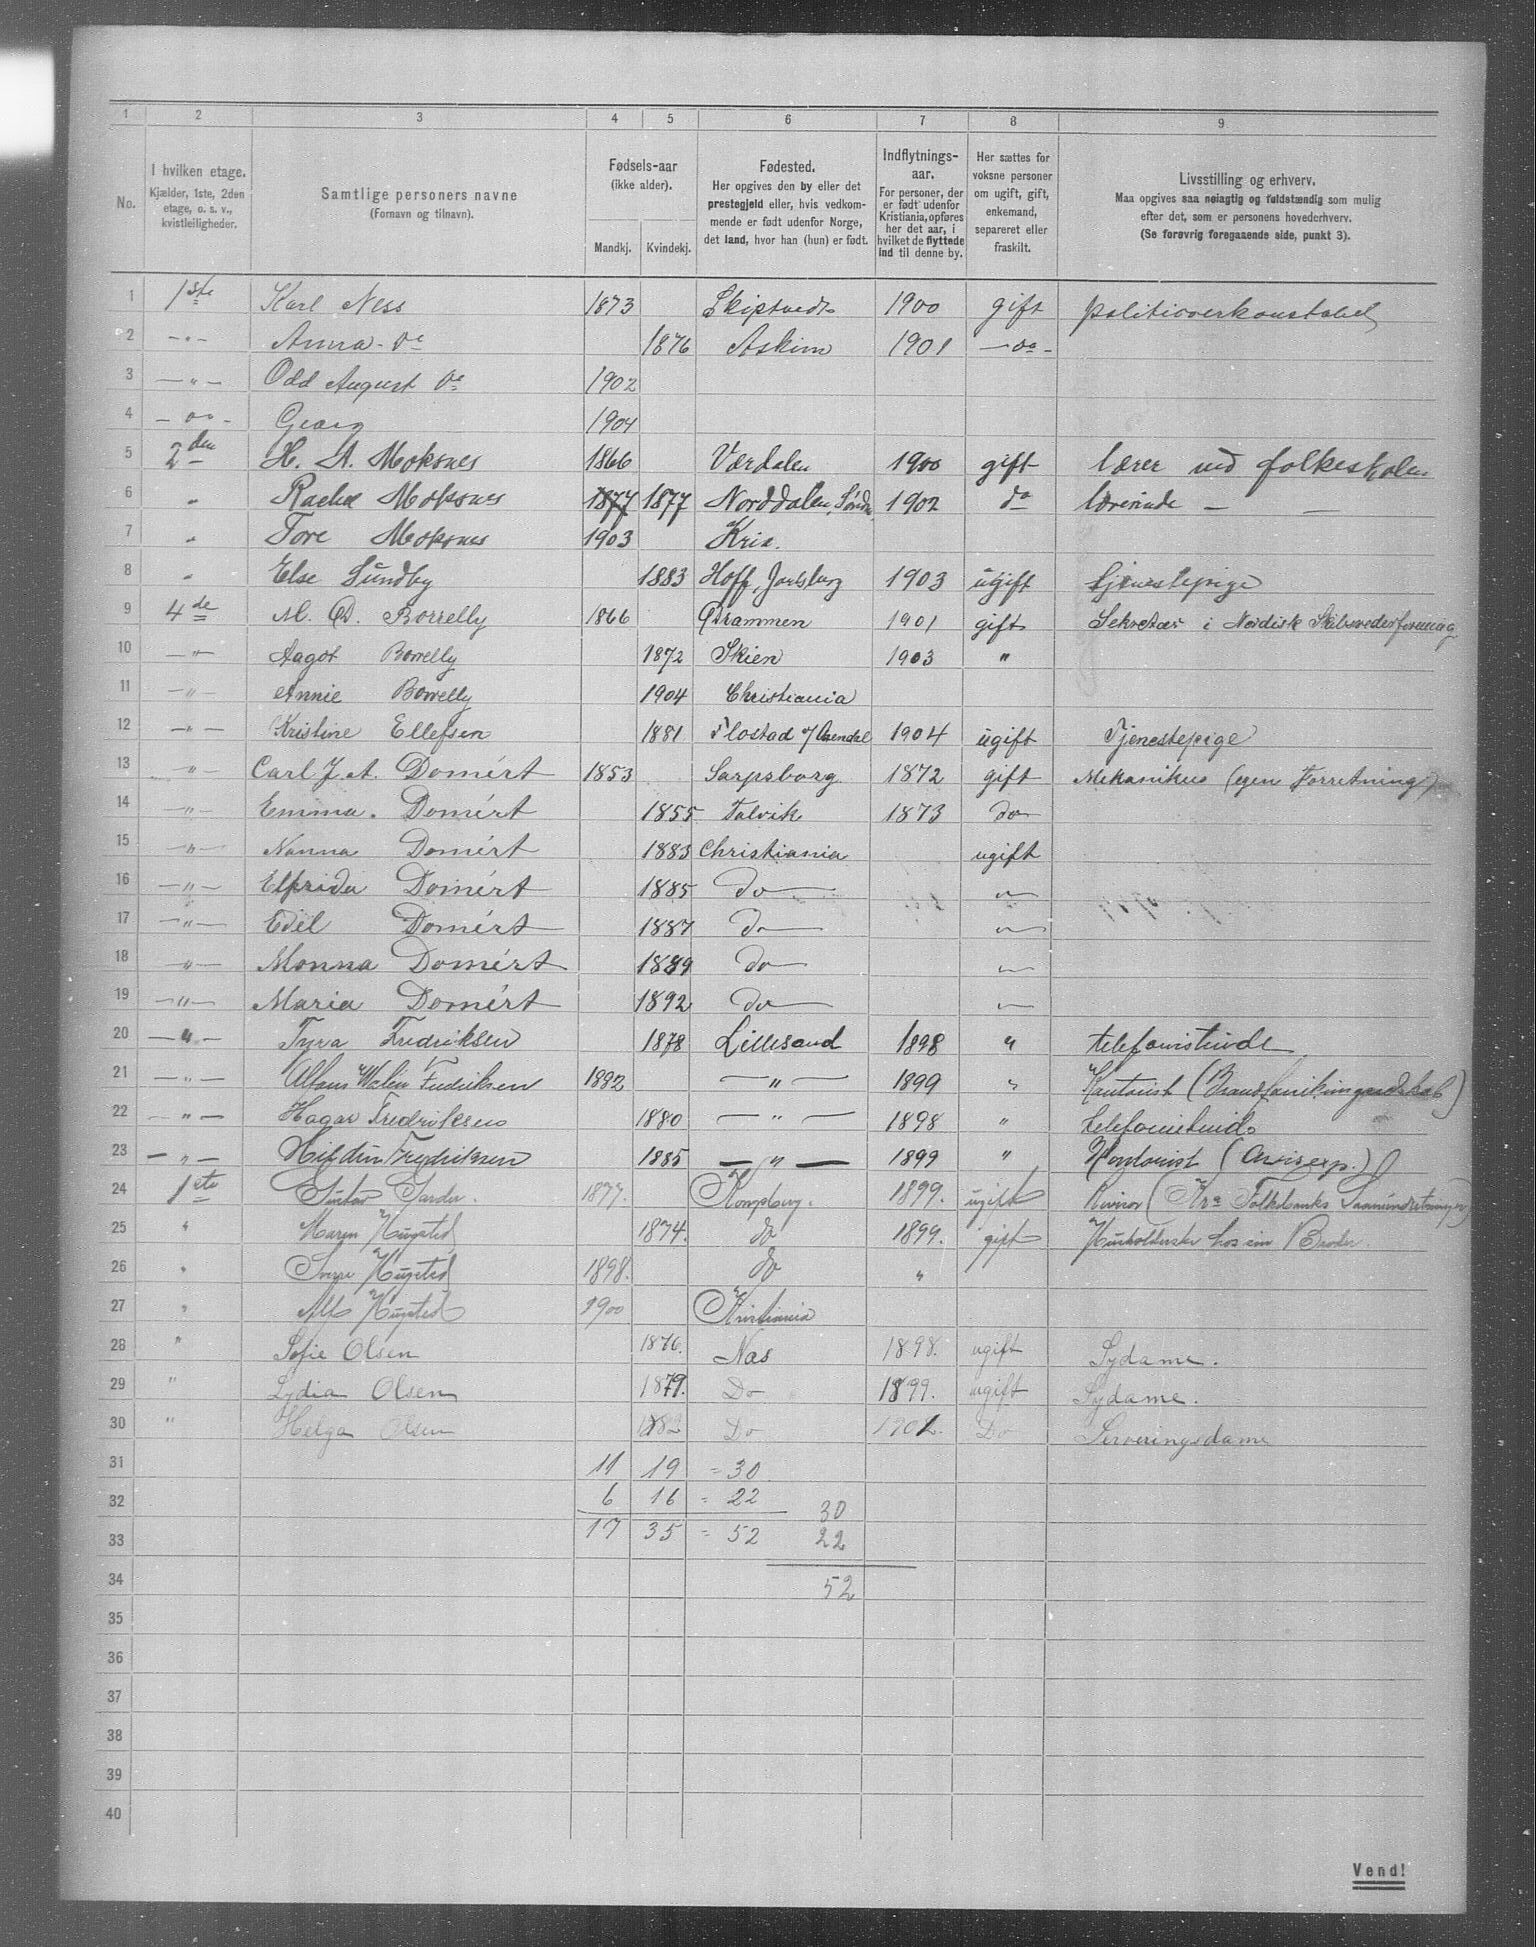 1 2 3 4 5 6 7 8 9
No.
I hvilken etage.
Kjælder, 1ste, 2den
etage, o. s. v.,
kvistleiligheder.
Samtlige personers navne
(Fornavn og tilnavn).
Fødsels-aar
(ikke alder).
Mandkj. Kvindekj.
Fødested.
Her opgives den by eller det
prestegjeld eller, hvis vedkom-
mende er født udenfor Norge,
det land, hvor han (hun) er født.
Indflytnings-
aar.
For personer, der
er født udenfor
Kristiania, opføres
her det aar, i
hvilket de flyttede
ind til denne by.
Her sættes for
voksne personer
om ugift, gift,
enkemand,
separeret eller
fraskilt.
Livsstilling og erhverv.
Maa opgives saa nøiagtig og fuldstændig som mulig
efter det, som er personens hovederhverv.
(Se forøvrig foregaaende side, punkt 3).
1 1ste Karl Ness 1873 Skiptvedt 1900 gift politioverkonstabel
2 -"- Anna - do 1876 Askim 1901 - do -
3 -"- Odd August do 1902
4 - do - Georg 1904
5 2den H. A. Moksnes 1866 Værdalen 1900 gift lærer ved folkeskolen
6 " Rachel Moksnes 1877 1877 Norddalen, Søndm. 1902 do lærerinde - -
7 " Tore Moksnes 1903 Kria.
8 " Else Sundby 1883 Hoff, Jarlsberg 1903 ugift tjenestepige
9 4de M. D. Borrelly 1866 Drammen 1901 gift Sekretær i Nordisk Skibsrederforening
10 -"- Aagot Borrelly 1872 Skien 1903 "
11 -"- Annie Borrelly 1904 Christiania
12 -"- Kristine Ellefsen 1881 Flostad v/ Arendal 1904 ugift Tjenestepige
13 -"- Carl J. A. Domért 1853 Sarpsborg 1872 gift Mekanikus (egen Forretning)
14 -"- Emma. Domért 1855 Talvik 1873 do
15 -"- Nanna Domért 1883 Christiania ugift
16 -"- Elfrida Domért 1885 do -"-
17 -"- Edel Domért 1887 do -"-
18 -"- Monna Domért 1889 do -"-
19 -"- Maria Domért 1892 do -"-
20 -"- Tyra Fredriksen 1878 Lillesand 1898 " telefonistinde
21 -"- Alfons Walin Fredriksen 1882 -"- 1899 " Kontorist
22 -"- Hagar Fredriksen 1880 -"- 1898 " telefonistinde
23 -"- Fredriksen 1885 -"- 1899 " Kontorist (Avisexp.)
24 1ste Gustav 1877. Kongsberg. 1899. ugift Revisor (Kra Folkebanks
25 " Maren Hugsted 1874. do 1899. gift Husholderske hos sin Broder
26 " Hugsted 1898. do "
27 " Alf Hugsted 1900 Kristiania
28 " Sofie Olsen 1876. Næs 1898. ugift Sydame.
29 " Lydia Olsen 1879. Do 1899. ugift Sydame.
30 " Helga Olsen 1882 Do 1902. Do Serveringsdame
31 11 19 = 30
32 6 16 = 22 30
33 17 35 = 52 22
34 52
35
36
37
38
39
40
Vend!